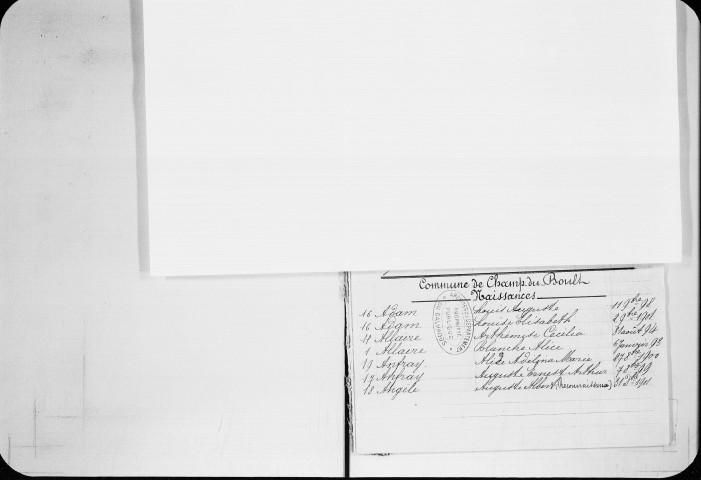 Commune de Champ du Boult
Naissances
16 Adam Louis Auguste 11 9bre 98
16 Adam Louise Elisabeth 2 9bre 1901
4 Allaire Arthémyse Cecilia août 94
1 Allaire Blanche Alice 6 Janvier 93
19 Anfray Alice Adelyna Marie 8bre 1900
17 Anfray Auguste Ernest Arthur 7 8bre 99
18 Angélé Auguste Albert (Reconnaissance) 31 1901